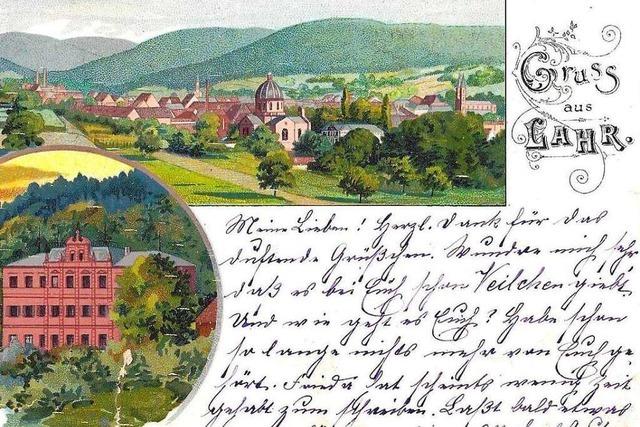 Gruss
aus
LAHR.
Meine Lieben! Herzl. Dank für das
duftende Grüßchen. Wundre mich sehr
daß es bei Euch schon Veilchen giebt.
Und wie geht es Euch? Habe schon
so lange nichts mehr von Euch ge
hört. Frieda hat scheints wenig Zeit
gehabt zum schreiben. Laßt bald etwas